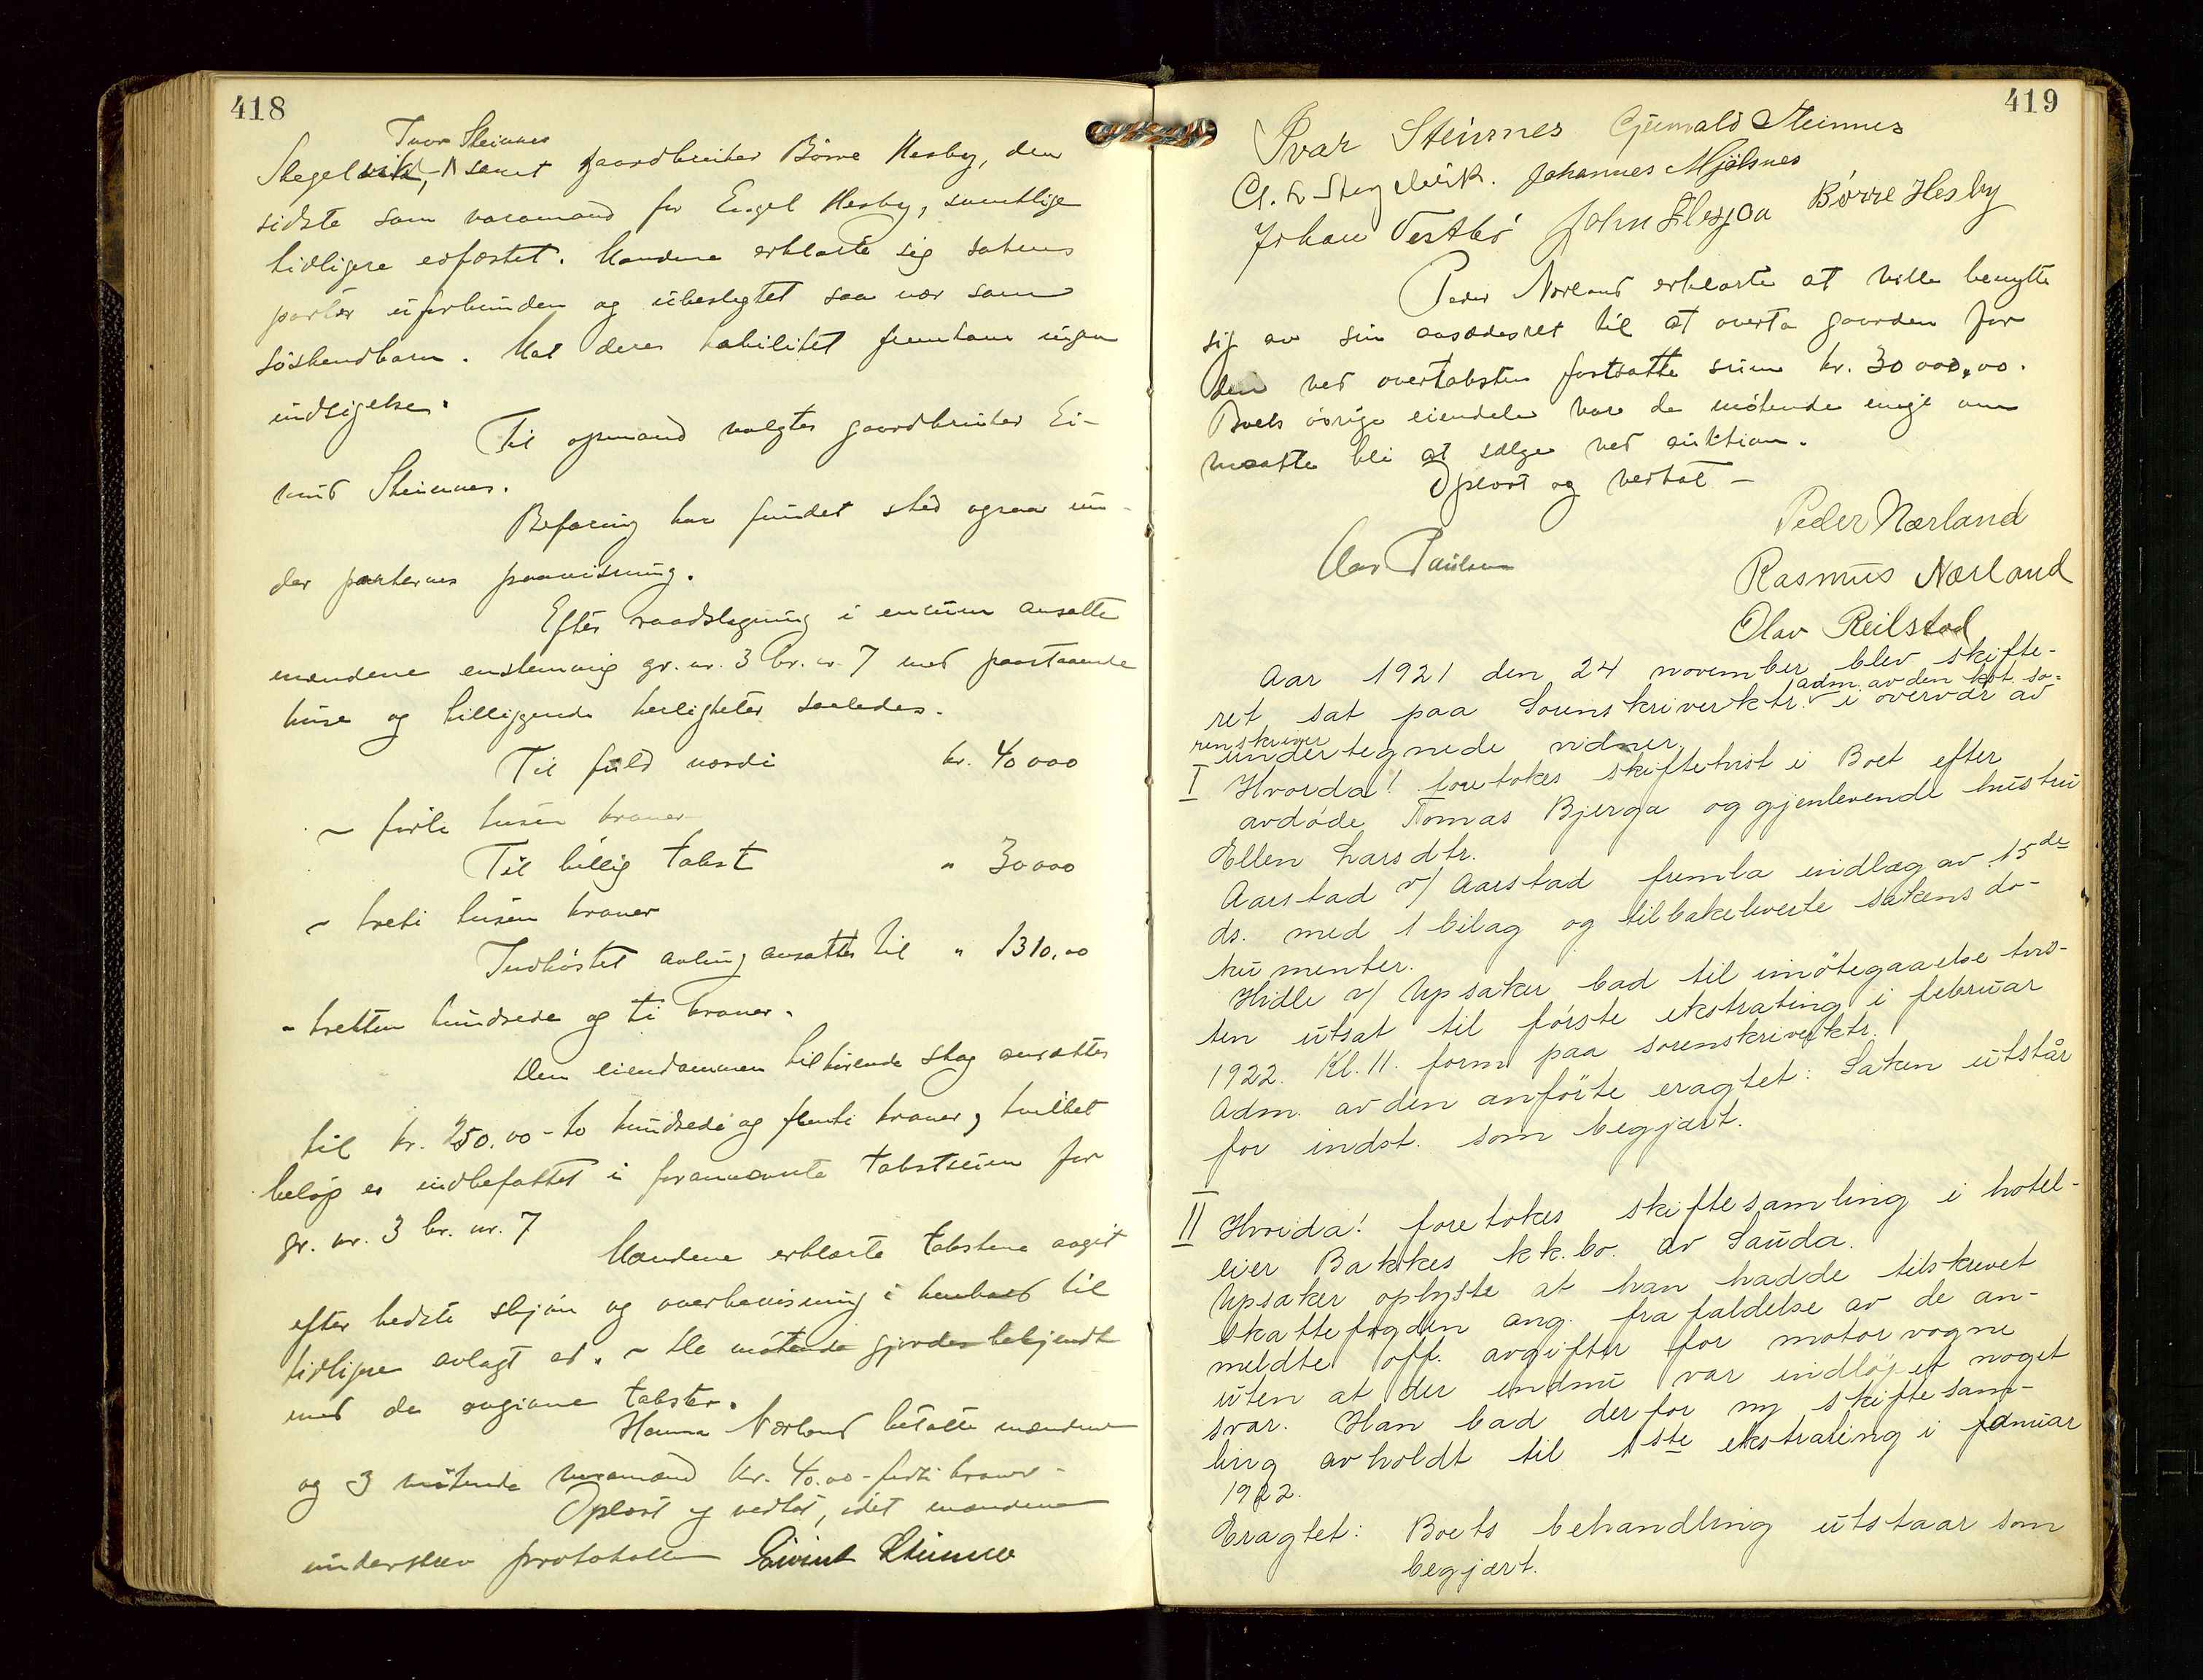 418
Ivar Steinnes
Stegelvik, samt gaardbruker Börre Hesby, den
sidste som varamand for Engel Hesby, samtlige
tidligere edfæstet. Mændene erklærte sig sakens
parter uforbunden og ubeslegtet saa nær som
söskendbarn. Mot deres habilitet fremkom ingen
indsigelse.
Til opmand valgtes gaardbruker Ei-
vind Steinnes.
Befaring har fundet sted ogsaa un-
der parternes paavisning.
Efter raadslagning i enrum ansatte
mændene enstemmig gr. nr. 3 br. nr. 7 med paastaaende
huse og tilliggende herligheter saaledes.
Til fuld værdi kr. 40000
- förti tusen kroner
Til billig takst " 30000
- treti tusen kroner
Indhöstet avling ansattes til " 1310,00
- tretten hundrede og ti kroner.
Den eiendommen tilhörende skog ansattes
til kr. 250.00 - to hundrede og femti kroner, hvilket
belöp er indbefattet i forannævnte takstsum for
gr. nr. 3 br. nr. 7
Mændene erklærte takstene avgit
efter bedste skjön og overbevisning i henhold til
tidligere avlagt ed. - De mötende gjordes bekjendt
med de avgivne takster.
Hanna Nærland betalte mændene
og 3 mötende varamænd kr. 40.00 - förti kroner -
Oplæst og vedtat, idet mændene
underskrev protokollen Eivind Steinnes
419
Ivar Steinnes Gunvald Steinnes
Johannes Mjölsnes
Johan Vestbö John Flesjaa Börre Hesby
Peder Nærland erklærte at ville benytte
sig av sin aasædesret til at overta gaarden for
den ved overtaksten fastsatte sum kr. 30000,00.
Boets övrige eiendele var de mötende enige om
maatte bli at sælge ved auktion.
Oplæst og vedtat -
Peder Nærland
Paulsen
Rasmus Nærland
Olav Reilstad
Aar 1921 den 24 november blev skifte-
ret sat paa Sorenskriverktr. adm. av den kst. so-
renskriver i overvær av
undertegnede vidner.
I Hvorda! foretokes skiftetvist i Boet efter
avdöde Tomas Bjerga og gjenlevende hustru
Ellen Larsdtr.
Aarstad v/ Aarstad fremla indlæg av 15de
ds. med 1 bilag og tilbakeleverte sakens do-
kumenter.
Hidle v/ Upsaker bad til imötegaaelse tvis-
ten utsat til förste ekstrating i februar
1922. Kl. 11. form paa sorenskriverktr.
Adm. avden anförte eragtet: Saken utstår
for indst. som begjært.
II Hvorda! foretokes skiftesamling i hotel-
eier Bakkes kk. bo. av Sauda.
Upsaker oplyste at han hadde tilskrevet
skattefogden ang. frafaldelse av de an-
meldte off. avgifter for motorvogne
uten at der endnu var indlöpet noget
svar. Han bad derfor ny skiftesam-
ling avholdt til 1ste ekstrating i januar
1922.
Eragtet: Boets behandling utstaar som
begjært.